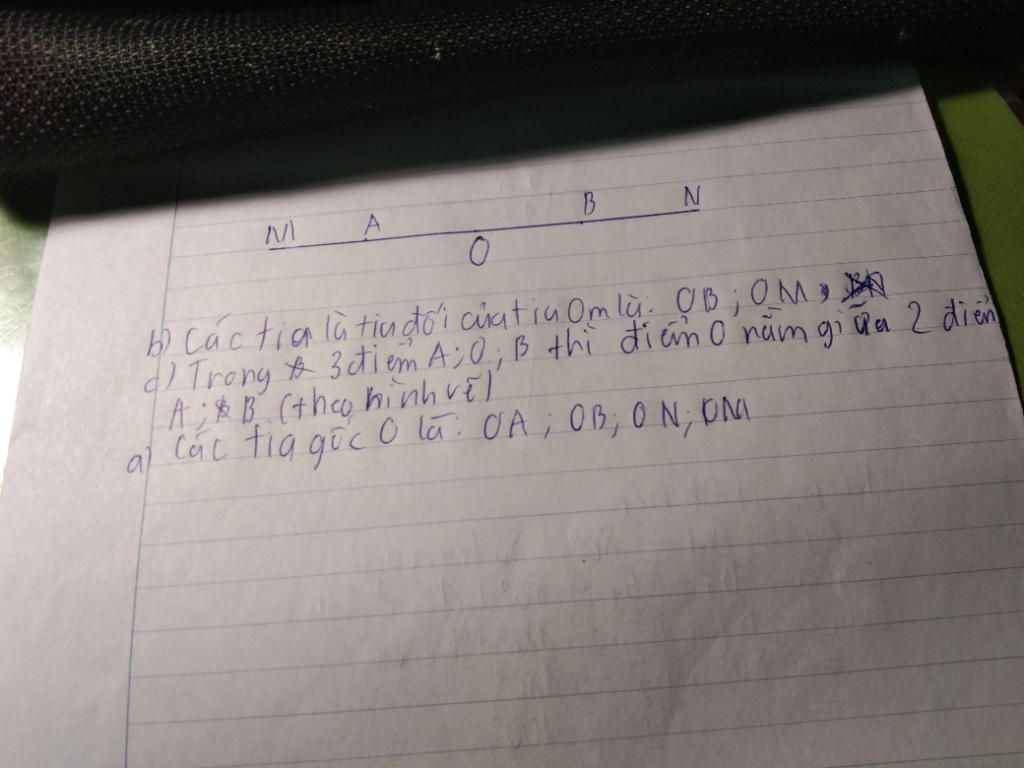 M A B N
O
b) Các tia là tia đối của tia Om là: OB; OM,
c) Trong 3 điểm A; O; B thì điểm O nằm giữa 2 điểm
A; B (theo hình vẽ)
a) Các tia gốc O là: OA; OB; ON; OM